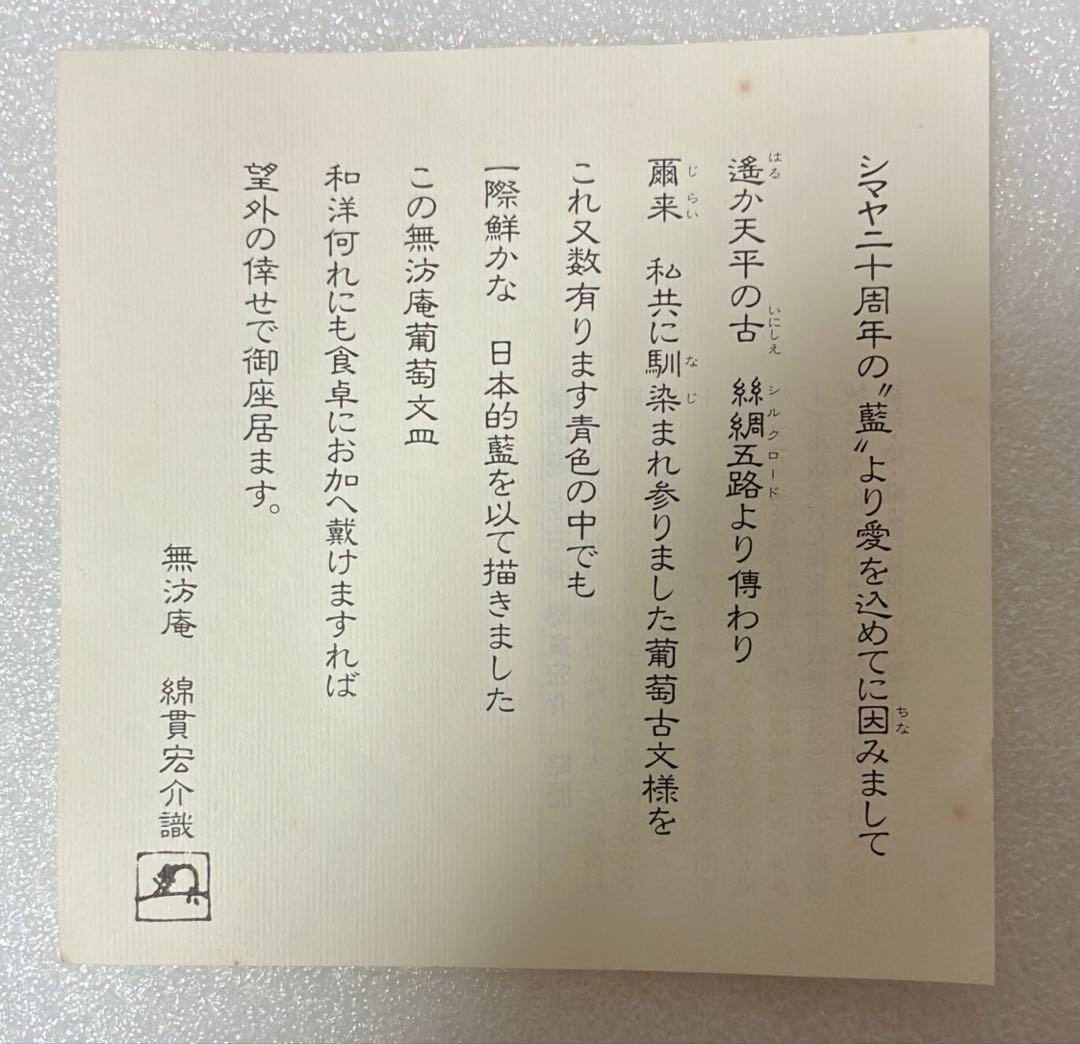 シマヤ二十周年の〝藍〟より愛を込めてに因みまして
遙か天平の古　絲綢五路より傳わり
爾来　私共に馴染まれ参りました葡萄古文様を
これ又数有ります青色の中でも
一際鮮かな　日本的藍を以て描きました
この無汸庵葡萄文皿
和洋何れにも食卓にお加へ戴けますれば
望外の倖せで御座居ます。
無汸庵　綿貫宏介識